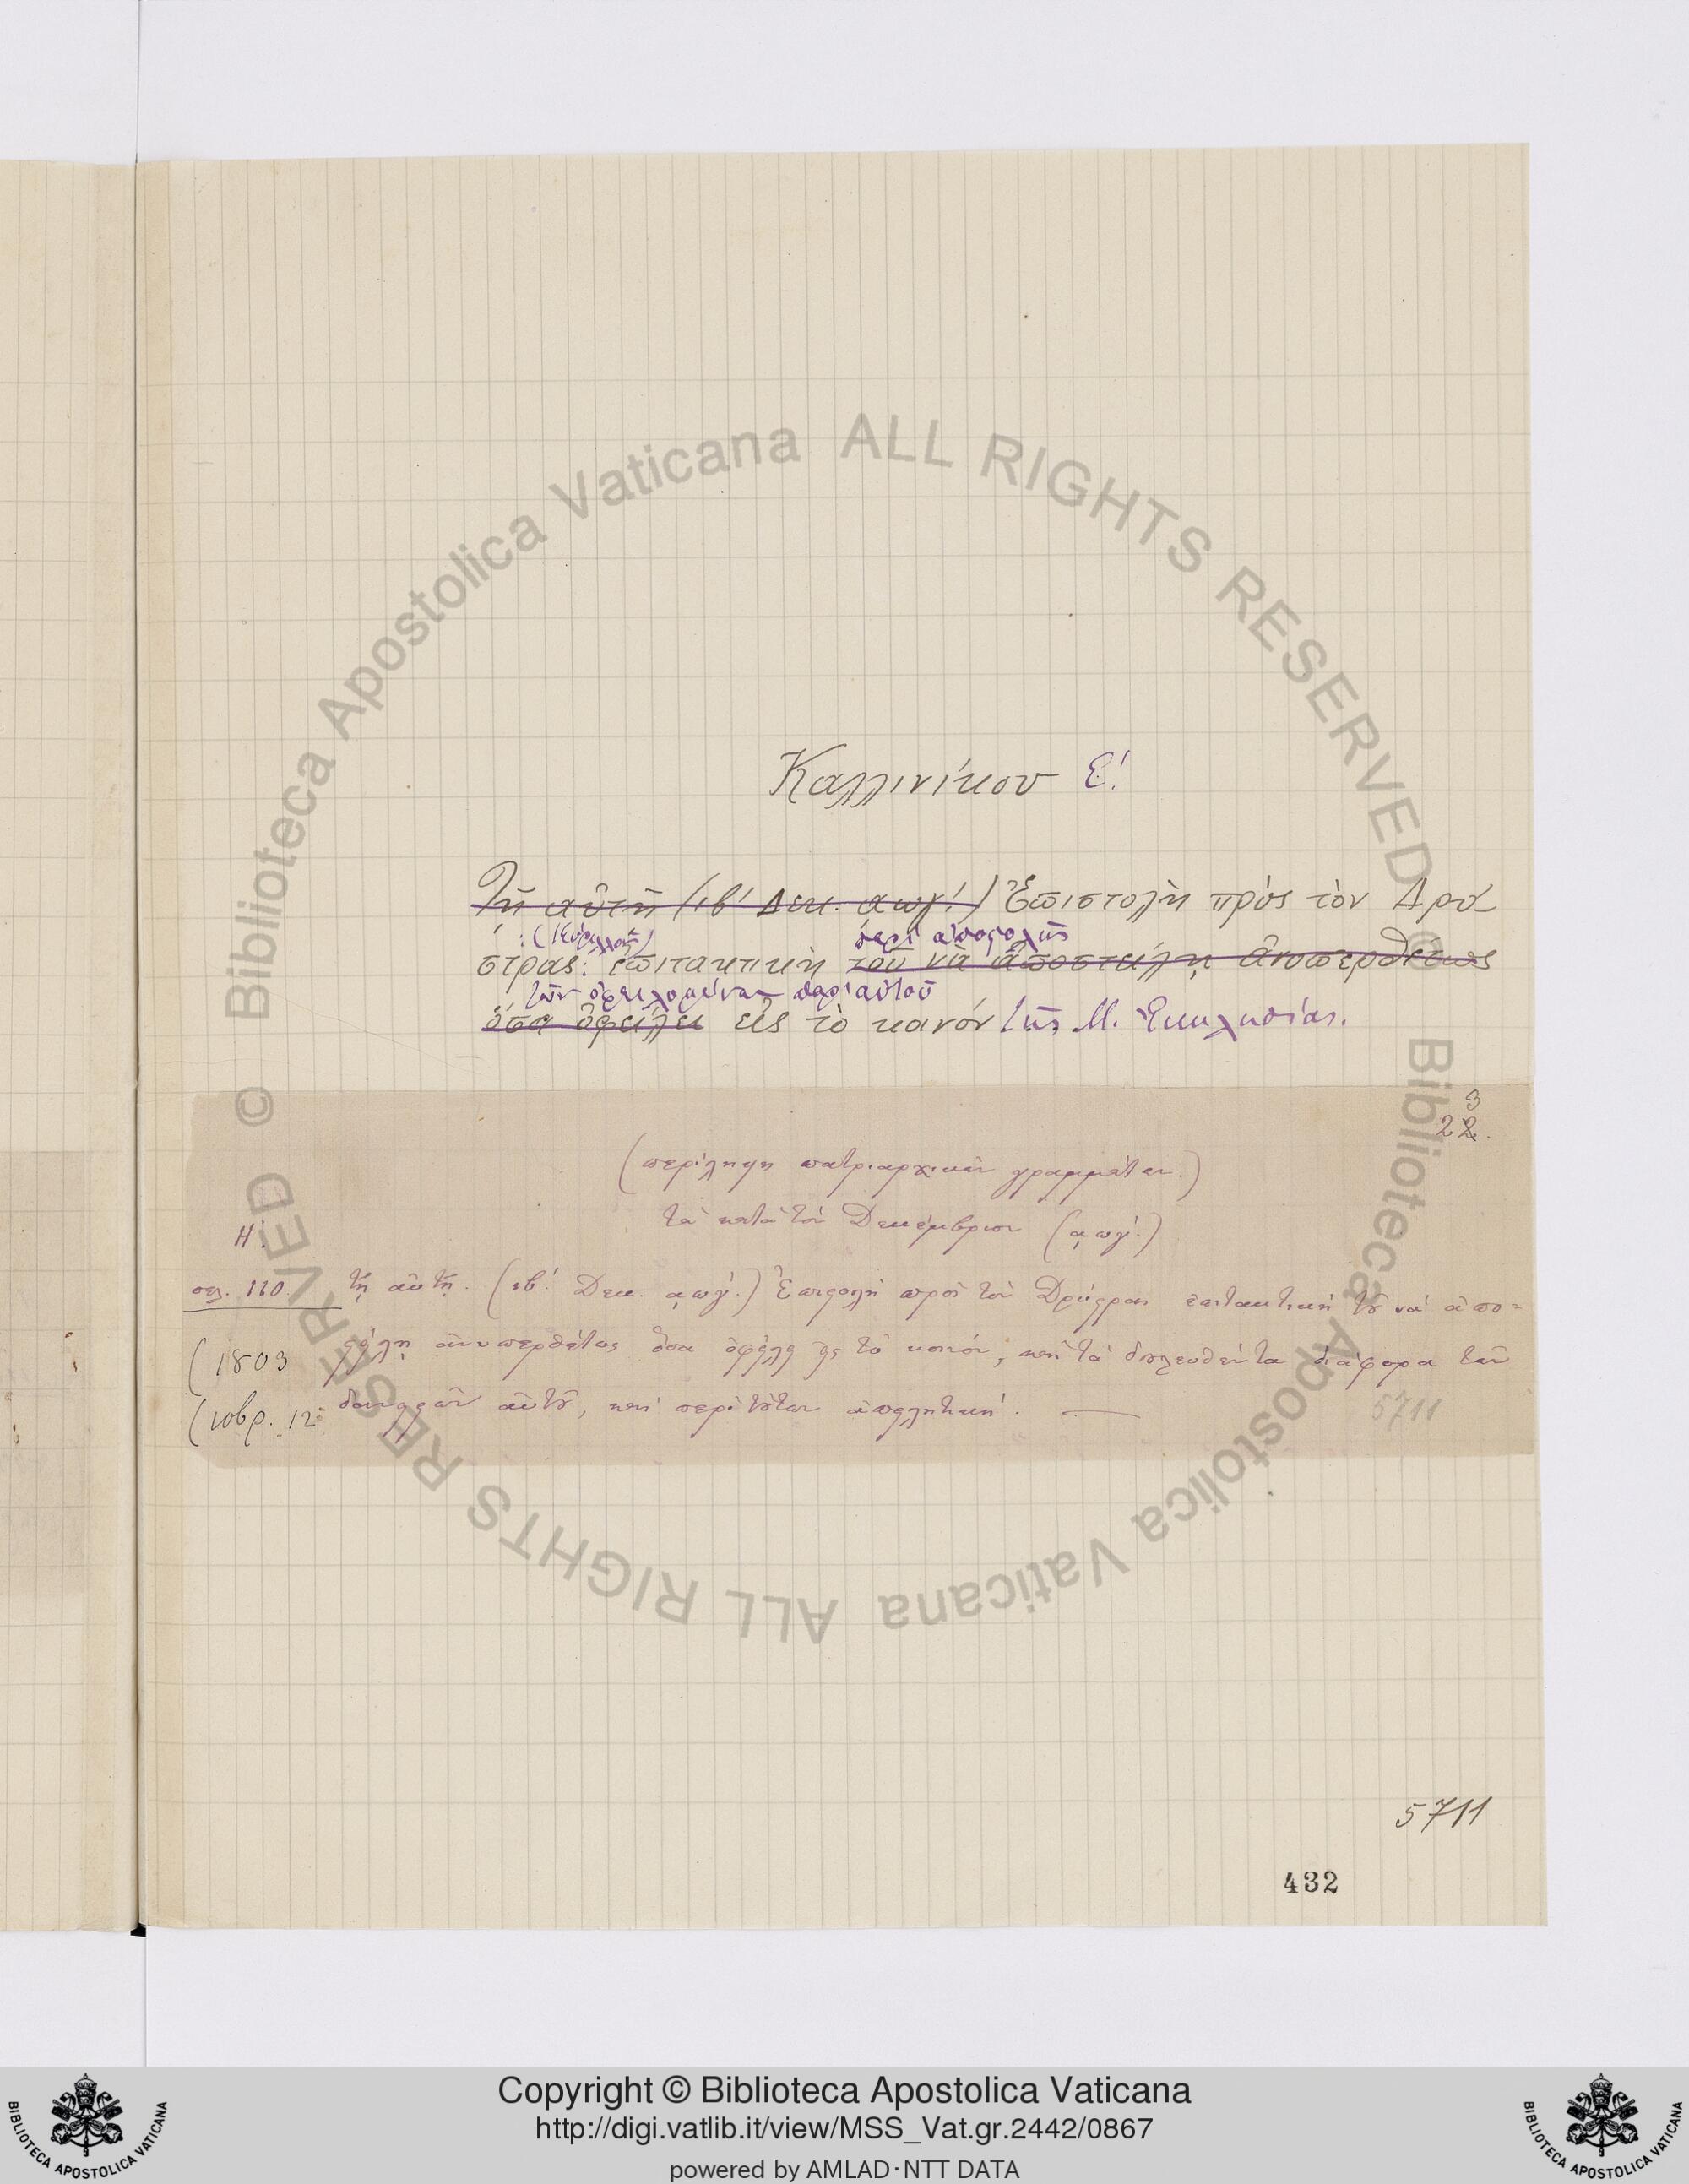 Καλλινίκου Ε!
Τῇ αὐτῇ (ιβ' Δεκ. αωγ'.) Ἐπιστολὴ πρὸς τὸν Δρύ-
:(Κύριλλον) περὶ ἀποστολῆς
στρας: ἐπιτακτικὴ τοῦ νὰ ἀποστείλῃ ἀνυπερθέτως
τῶν ὀφειλομένων παρ' αὐτοῦ
ὅσα ὀφείλει εἰς τὸ κοινόν τῆς Μ. Ἐκκλησίας.
3
22.
(περίληψη πατριαρχικῶν γραμμάτων.)
τὰ κατὰ τὸν Δεκέμβριον (͵αωγ'.)
Η'.
σελ. 110. τῇ αὐτῇ. (ιβ'. Δεκ. ͵αωγ'.) Ἐπιστολὴ πρὸς τὸν Δρύστρας ἐπιτακτικὴ τοῦ νὰ ἀπο=
(1803 στείλῃ ἀνυπερθέτως ὅσα ὀφείλει εἰς τὸ κοινόν, καὶ τὰ δουλευθέντα διάφορα τῶν
(10βρ. 12 αὐτοῦ, καὶ περὶ τούτων ἀπειλητική. —
5711
5711
432
Biblioteca Apostolica Vaticana ALL RIGHTS RESERVED ©
Biblioteca Apostolica Vaticana ALL RIGHTS RESERVED ©
Copyright © Biblioteca Apostolica Vaticana
http://digi.vatlib.it/view/MSS_Vat.gr.2442/0867
powered by AMLAD·NTT DATA
BIBLIOTECA APOSTOLICA VATICANA
BIBLIOTECA APOSTOLICA VATICANA